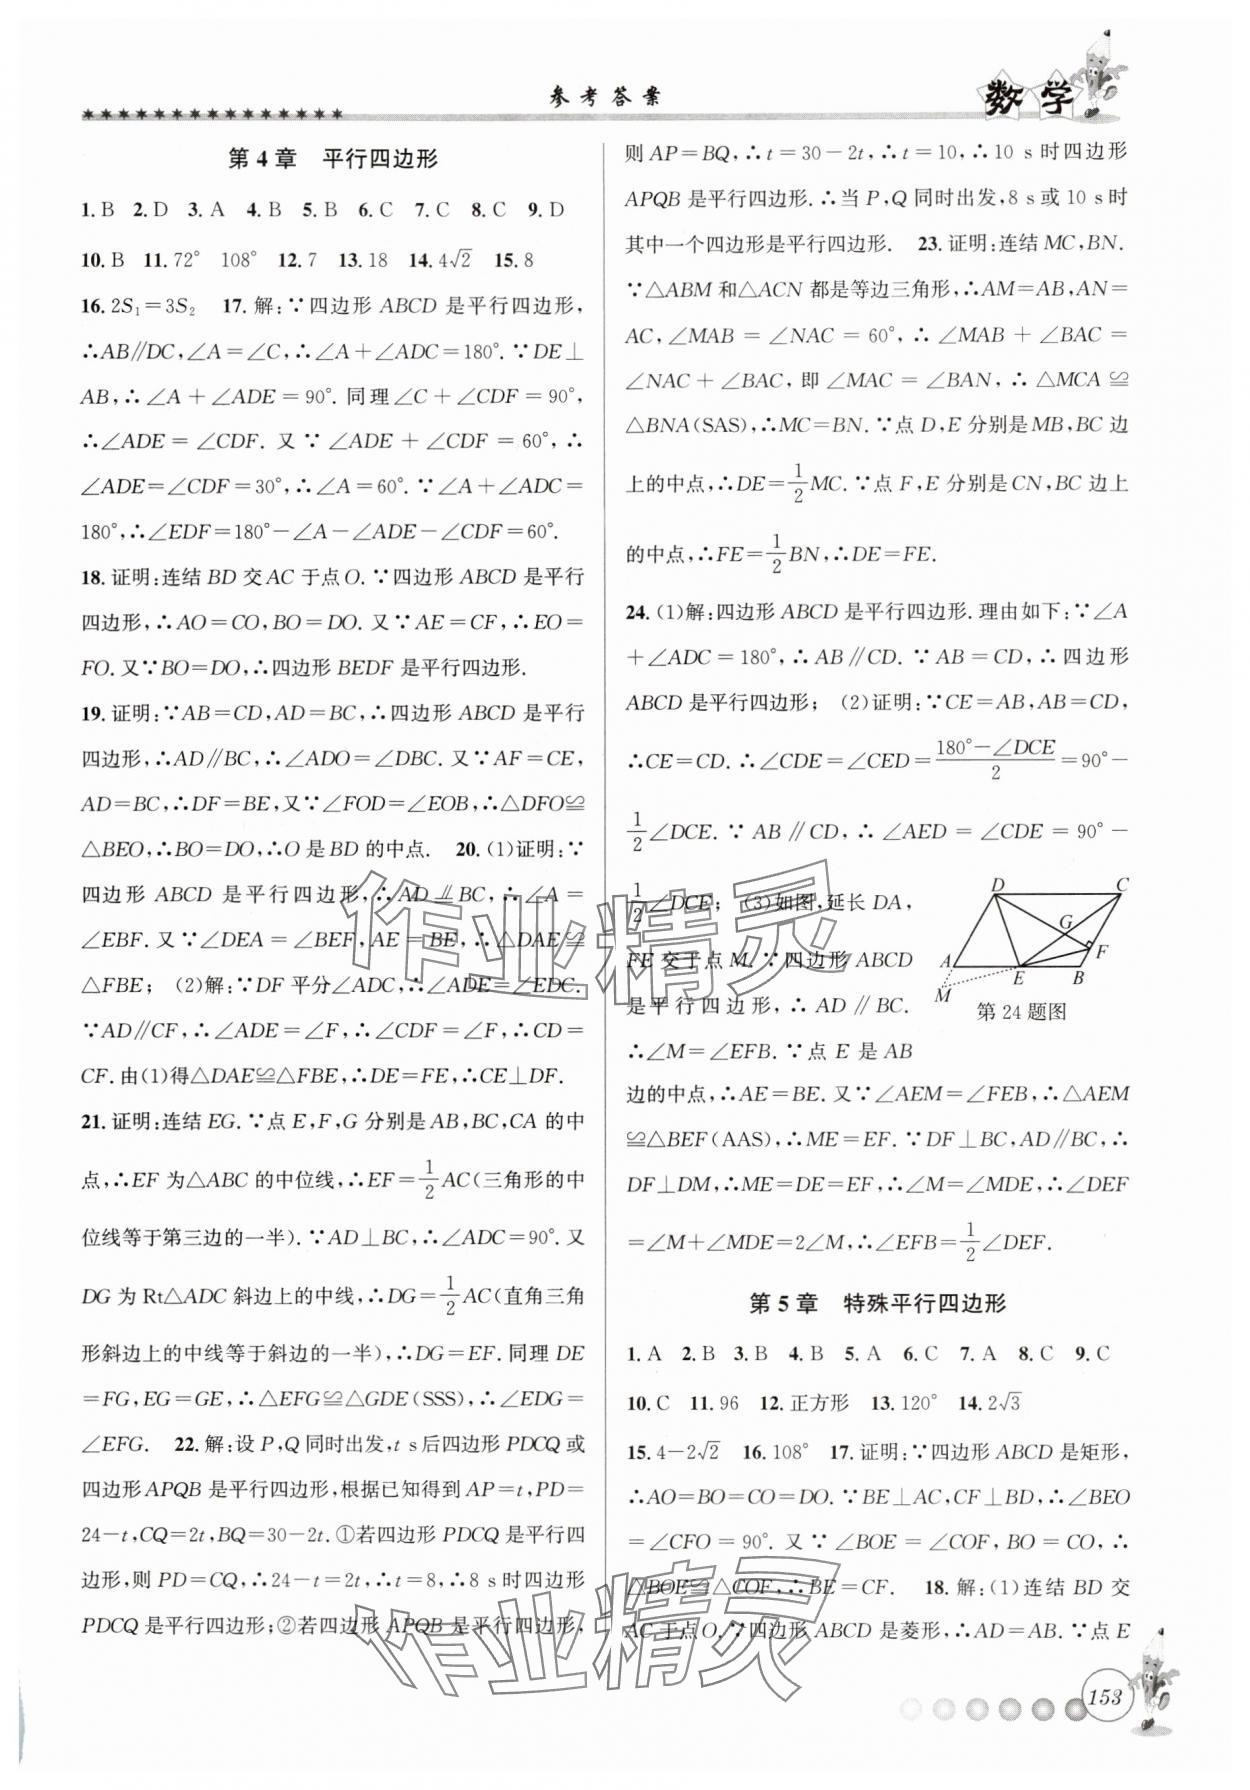 参考答案
数学
第4章 平行四边形
1. B 2. D 3. A 4. B 5. B 6. C 7. C 8. C 9. D
10. B 11. 72° 108° 12. 7 13. 18 14. 4√2 15. 8
16. 2S₁=3S₂ 17. 解:∵四边形 ABCD 是平行四边形,
∴AB∥DC,∠A=∠C,∴∠A+∠ADC=180°. ∵DE⊥
AB,∴∠A+∠ADE=90°. 同理∠C+∠CDF=90°,
∴∠ADE=∠CDF. 又∵∠ADE+∠CDF=60°,∴
∠ADE=∠CDF=30°,∴∠A=60°. ∵∠A+∠ADC=
180°,∴∠EDF=180°-∠A-∠ADE-∠CDF=60°.
18. 证明:连结 BD 交 AC 于点 O. ∵四边形 ABCD 是平行
四边形,∴AO=CO,BO=DO. 又∵AE=CF,∴EO=
FO. 又∵BO=DO,∴四边形 BEDF 是平行四边形.
19. 证明:∵AB=CD,AD=BC,∴四边形 ABCD 是平行
四边形,∴AD∥BC,∴∠ADO=∠DBC. 又∵AF=CE,
AD=BC,∴DF=BE,又∵∠FOD=∠EOB,∴△DFO≌
△BEO,∴BO=DO,∴O 是 BD 的中点. 20. (1)证明:∵
四边形 ABCD 是平行四边形,∴AD∥BC,∴∠A=
∠EBF. 又∵∠DEA=∠BEF,AE=BE,∴△DAE≌
△FBE; (2)解:∵DF 平分∠ADC,∴∠ADE=∠EDC.
∵AD∥CF,∴∠ADE=∠F,∴∠CDF=∠F,∴CD=
CF. 由(1)得△DAE≌△FBE,∴DE=FE,∴CE⊥DF.
21. 证明:连结 EG. ∵点 E,F,G 分别是 AB,BC,CA 的中
点,∴EF 为△ABC 的中位线,∴EF=1/2AC(三角形的中
位线等于第三边的一半). ∵AD⊥BC,∴∠ADC=90°. 又
DG 为 Rt△ADC 斜边上的中线,∴DG=1/2AC(直角三角
形斜边上的中线等于斜边的一半),∴DG=EF. 同理 DE
=FG,EG=GE,∴△EFG≌△GDE(SSS),∴∠EDG=
∠EFG. 22. 解:设 P,Q 同时出发,t s后四边形 PDCQ 或
四边形 APQB 是平行四边形,根据已知得到 AP=t,PD=
24-t,CQ=2t,BQ=30-2t. ①若四边形 PDCQ 是平行四
边形,则 PD=CQ,∴24-t=2t,∴t=8,∴8 s时四边形
PDCQ 是平行四边形;②若四边形 APQB 是平行四边形,
则 AP=BQ,∴t=30-2t,∴t=10,∴10 s 时四边形
APQB 是平行四边形.∴当 P,Q 同时出发,8 s或 10 s时
其中一个四边形是平行四边形. 23. 证明:连结 MC,BN.
∵△ABM 和△ACN 都是等边三角形,∴AM=AB,AN=
AC,∠MAB=∠NAC=60°,∴∠MAB+∠BAC=
∠NAC+∠BAC,即∠MAC=∠BAN,∴△MCA≌
△BNA(SAS),∴MC=BN. ∵点 D,E 分别是 MB,BC 边
上的中点,∴DE=1/2MC. ∵点 F,E 分别是 CN,BC 边上
的中点,∴FE=1/2BN,∴DE=FE.
24. (1)解:四边形 ABCD 是平行四边形.理由如下:∵∠A
+∠ADC=180°,∴AB∥CD. ∵AB=CD,∴四边形
ABCD 是平行四边形; (2)证明:∵CE=AB,AB=CD,
∴CE=CD. ∴∠CDE=∠CED=(180°-∠DCE)/2=90°-
1/2∠DCE. ∵AB∥CD,∴∠AED=∠CDE=90°-
1/2∠DCE; (3)如图,延长 DA,
FE 交于点 M. ∵四边形 ABCD
是平行四边形,∴AD∥BC.
∴∠M=∠EFB. ∵点 E 是 AB
D C G F A E B M
第 24 题图
边的中点,∴AE=BE. 又∵∠AEM=∠FEB,∴△AEM
≌△BEF(AAS),∴ME=EF. ∵DF⊥BC,AD∥BC,∴
DF⊥DM,∴ME=DE=EF,∴∠M=∠MDE,∴∠DEF
=∠M+∠MDE=2∠M,∴∠EFB=1/2∠DEF.
第5章 特殊平行四边形
1. A 2. B 3. B 4. B 5. A 6. C 7. A 8. C 9. C
10. C 11. 96 12. 正方形 13. 120° 14. 2√3
15. 4-2√2 16. 108° 17. 证明:∵四边形 ABCD 是矩形,
∴AO=BO=CO=DO. ∵BE⊥AC,CF⊥BD,∴∠BEO
=∠CFO=90°. 又∵∠BOE=∠COF,BO=CO,∴
△BOE≌△COF,∴BE=CF. 18. 解:(1)连结 BD 交
AC 于点 O. ∵四边形 ABCD 是菱形,∴AD=AB. ∵点 E
153
作业精灵
作业精灵